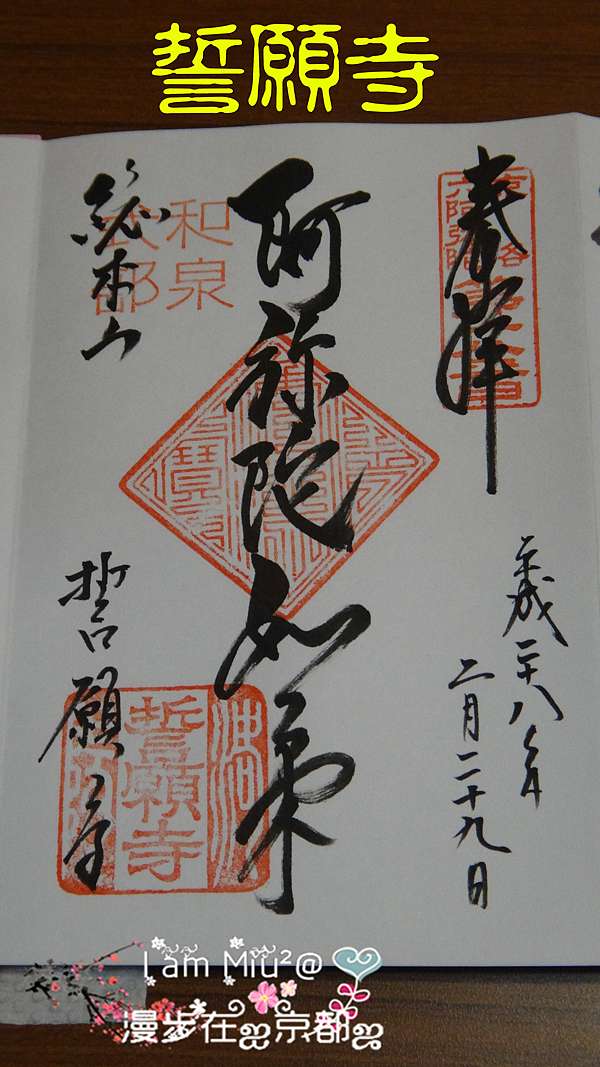 誓願寺
奉拝
平成二十八年
二月二十九日
阿弥陀如来
和泉
式部
総本山
誓願寺
誓願寺
I am Miu²@
漫步在ஐ京都ஐ